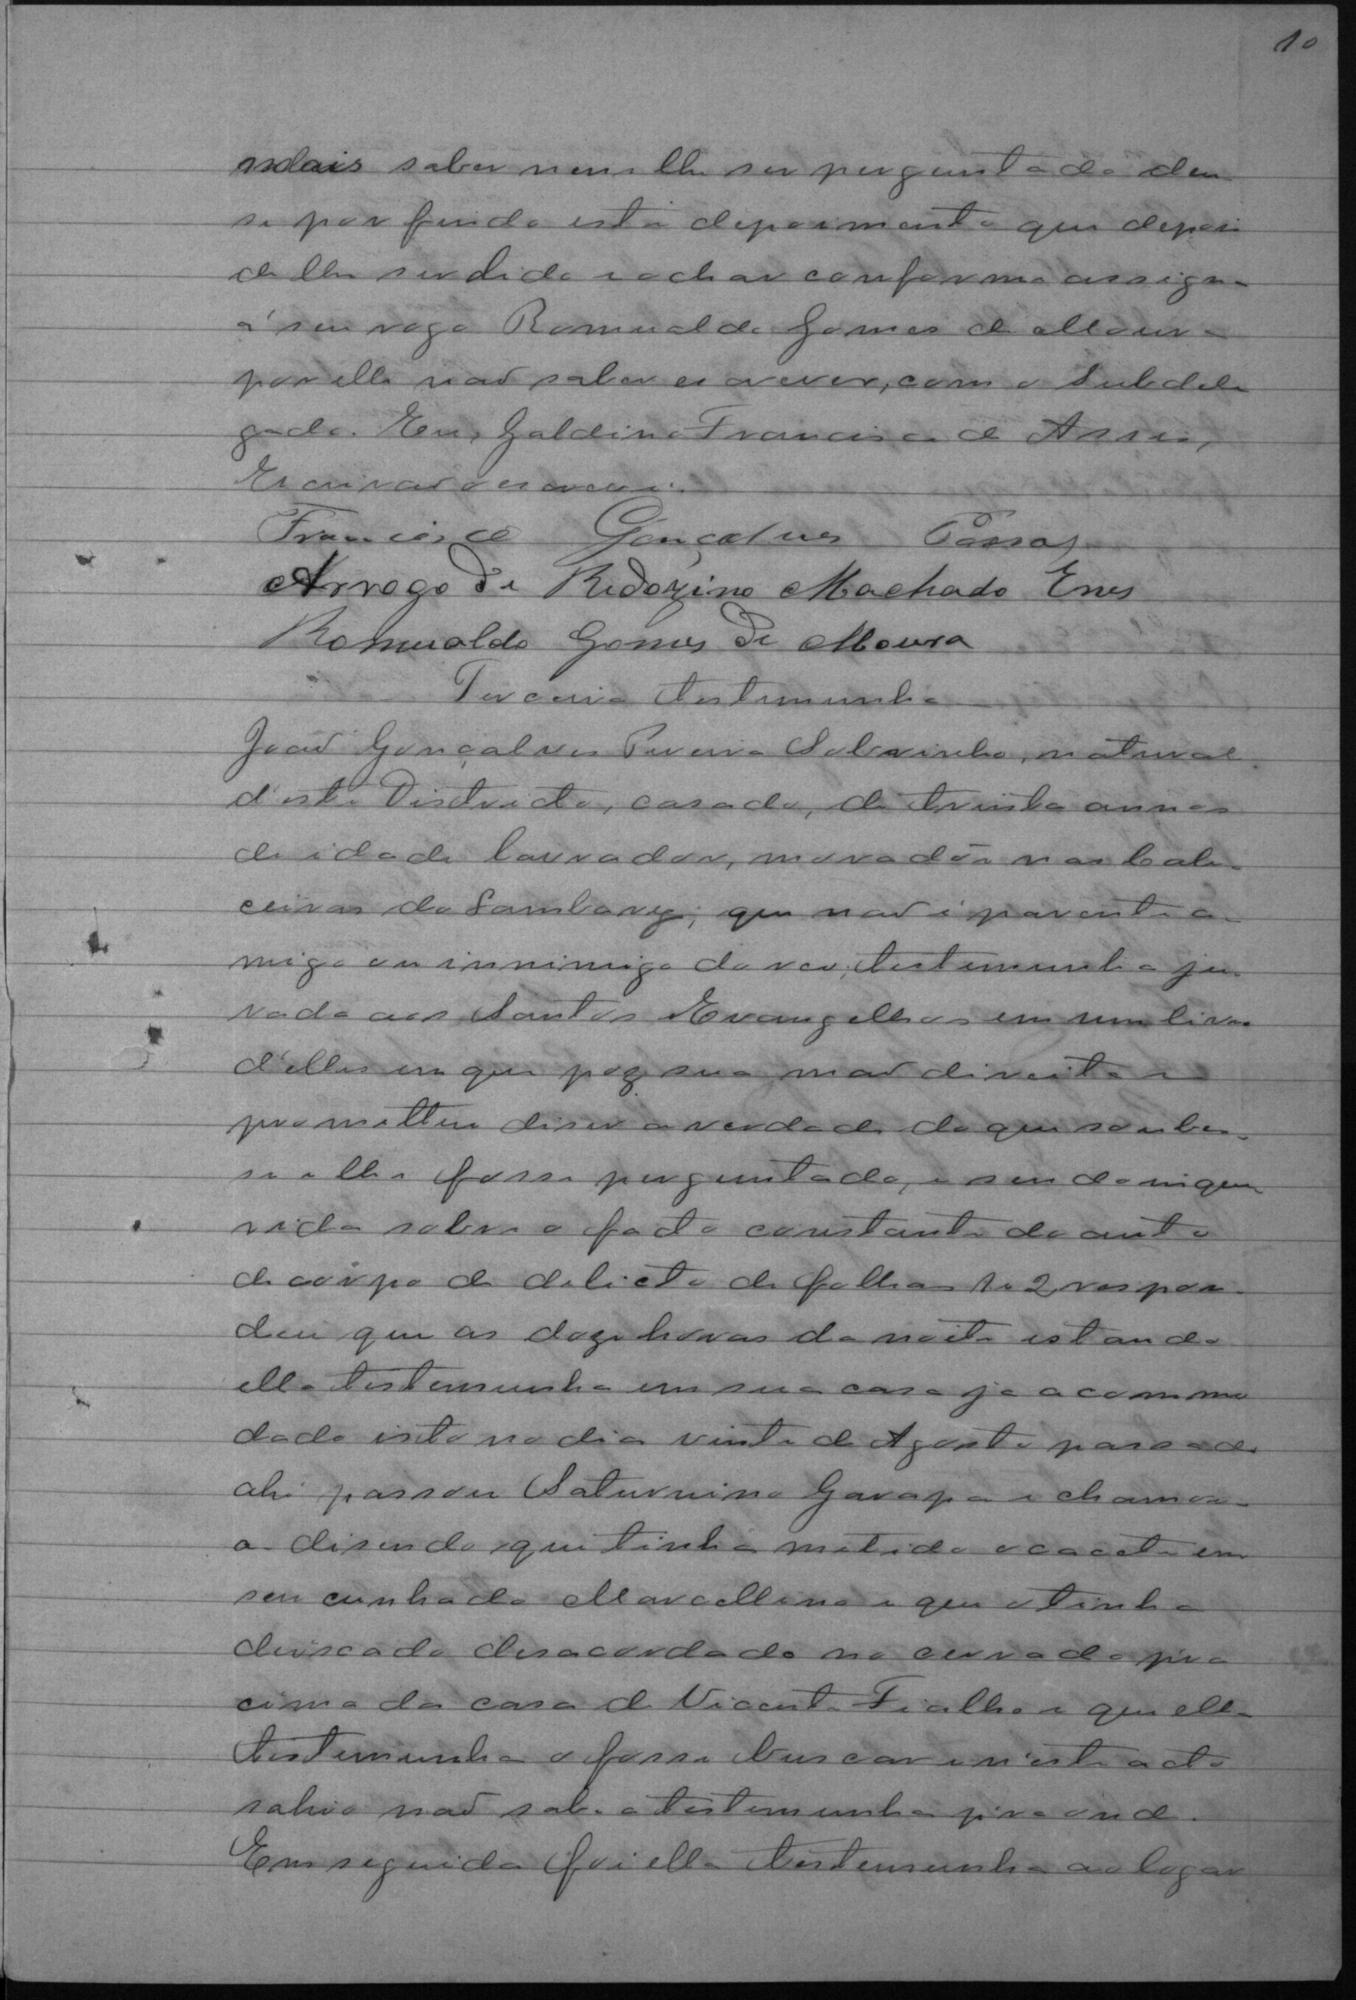 10
mais saber nem lhe ser perguntado deu
se por findo este depoimento que depois
de lhe ser lido e achar conforme assigna
a' seu rogo Romualdo Gomes de Moura
por elle não saber escrever, com o Subdele
gado. Eu, Galdino Francisco de Assis,
Escrivão o escrevi.
Francisco Gonçalves Passos
Arrogo de Redozino Machado Enes
Romualdo Gomes de Moura
Terceira testemunha
João Gonçalves Pereira Sobrinho, natural
d'este Districto, casado, de trinta annos
de idade lavrador, morador nas Cabe
ceiras do Sambary; que não é parente a
migo ou innimigo do reo; testemunha ju
rada aos Santos Evangelhos em um livro
d'elles em que poz sua mão direita e
prometteu diser a verdade do que soubes
se e lhe fosse perguntado, e sendo inque
rida sobre o facto constante do auto
de corpo de delicto de folhas 1 e 2 respon
deu que as doze horas da noite estando
elle testemunha em sua casa ja acommo
dado isto no dia vinte de Agosto passado
ahi passou Saturnino Garapa e chamou
o disendo que tinha metido o cacete em
seu cunhado Marcellino e que o tinha
deixado desacordado no cerrado pra
cima da casa de Vicente Fialho e que elle
testemunha o fosse buscar e n'este acto
sahio não sabe a testemunha pra onde.
Em seguida foi elle testemunha ao logar